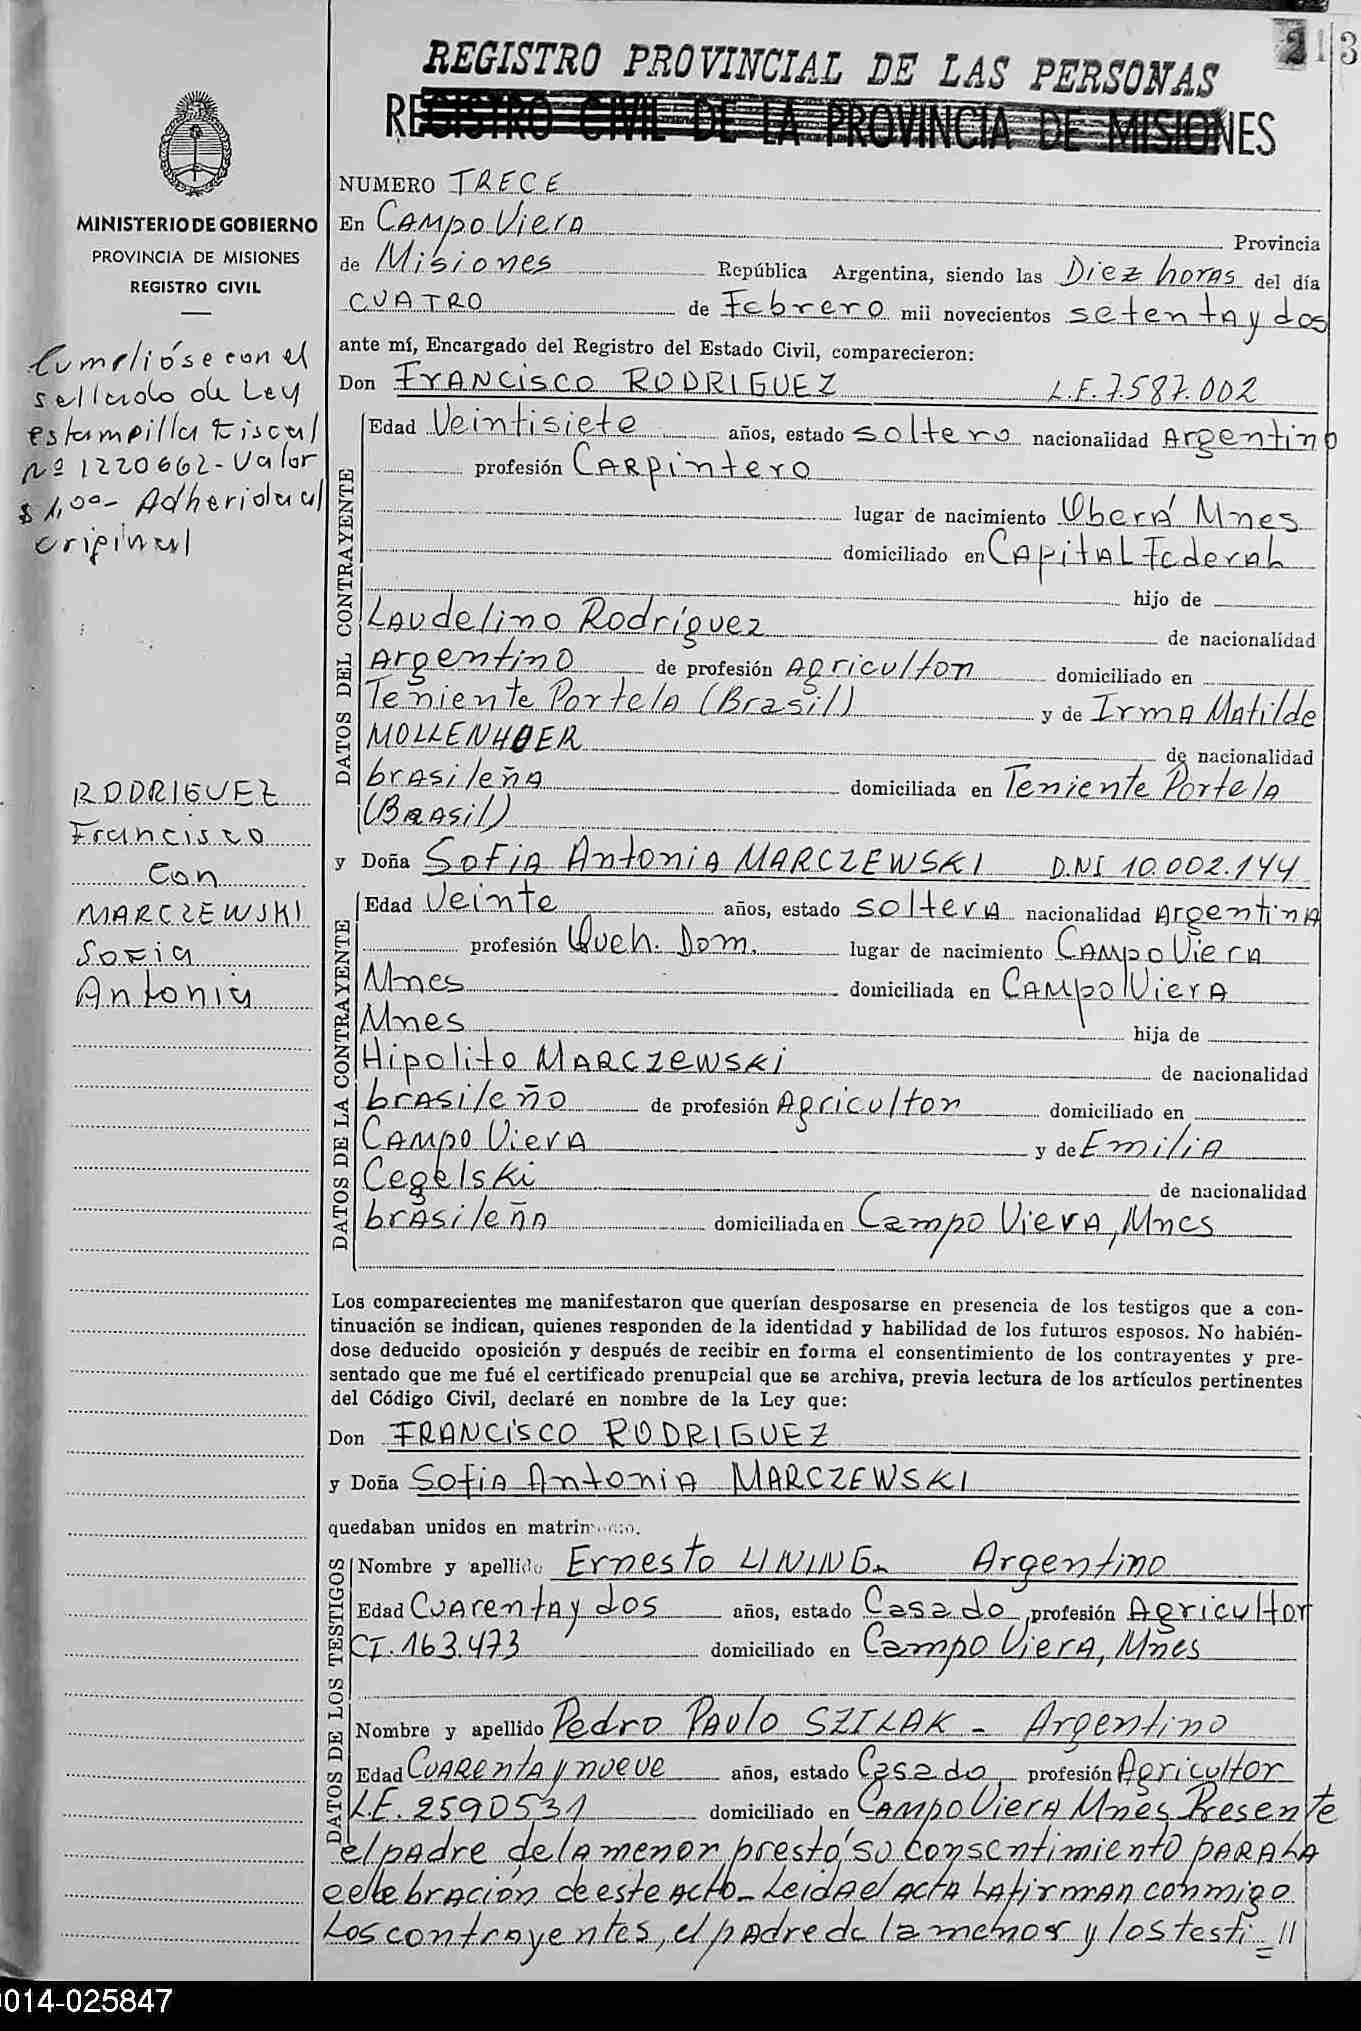 213
REGISTRO PROVINCIAL DE LAS PERSONAS
REGISTRO CIVIL DE LA PROVINCIA DE MISIONES
MINISTERIO DE GOBIERNO
PROVINCIA DE MISIONES
REGISTRO CIVIL
Cumplióse con el
sellado de Ley
estampilla fiscal
Nº 1220662 - Valor
$ 1,00 - Adherida al
original
RODRIGUEZ
Francisco
con
MARCZEWSKI
Sofia
Antonia
NUMERO TRECE
En Campo Viera Provincia
de Misiones República Argentina, siendo las Diez horas del día
CUATRO de Febrero mil novecientos setenta y dos
ante mí, Encargado del Registro del Estado Civil, comparecieron:
Don FRANCISCO RODRIGUEZ L.E. 7.587.002
DATOS DEL CONTRAYENTE
Edad Veintisiete años, estado soltero nacionalidad Argentino
profesión Carpintero
lugar de nacimiento Oberá Mnes
domiciliado en Capital Federal
hijo de
Laudelino Rodríguez de nacionalidad
Argentino de profesión Agricultor domiciliado en
Teniente Portela (Brasil) y de Irma Matilde
MOLLENHOER de nacionalidad
brasileña domiciliada en Teniente Portela
(Brasil)
y Doña Sofia Antonia MARCZEWSKI D.N.I 10.002.144
DATOS DE LA CONTRAYENTE
Edad Veinte años, estado soltera nacionalidad Argentina
profesión Queh. Dom. lugar de nacimiento Campo Viera
Mnes domiciliada en Campo Viera
Mnes hija de
Hipolito MARCZEWSKi de nacionalidad
brasileño de profesión Agricultor domiciliado en
Campo Viera y de Emilia
Cegelski de nacionalidad
brasileña domiciliada en Campo Viera, Mnes
Los comparecientes me manifestaron que querían desposarse en presencia de los testigos que a con-
tinuación se indican, quienes responden de la identidad y habilidad de los futuros esposos. No habién-
dose deducido oposición y después de recibir en forma el consentimiento de los contrayentes y pre-
sentado que me fué el certificado prenupcial que se archiva, previa lectura de los artículos pertinentes
del Código Civil, declaré en nombre de la Ley que:
Don FRANCISCO RODRIGUEZ
y Doña Sofia Antonia MARCZEWSKI
quedaban unidos en matrimonio.
DATOS DE LOS TESTIGOS
Nombre y apellido Ernesto LINING- Argentino
Edad Cuarenta y dos años, estado Casado, profesión Agricultor
CI. 163.473 domiciliado en Campo Viera, Mnes
Nombre y apellido Pedro Paulo SZILAK - Argentino
Edad Cuarenta y nueve años, estado Casado, profesión Agricultor
L.E. 2590531 domiciliado en Campo Viera Mnes Presente
el padre de la menor prestó su consentimiento para la
celebración de este acto - Leida el acta la firman conmigo
los contrayentes, el padre de la menor y los testi=//
014-025847